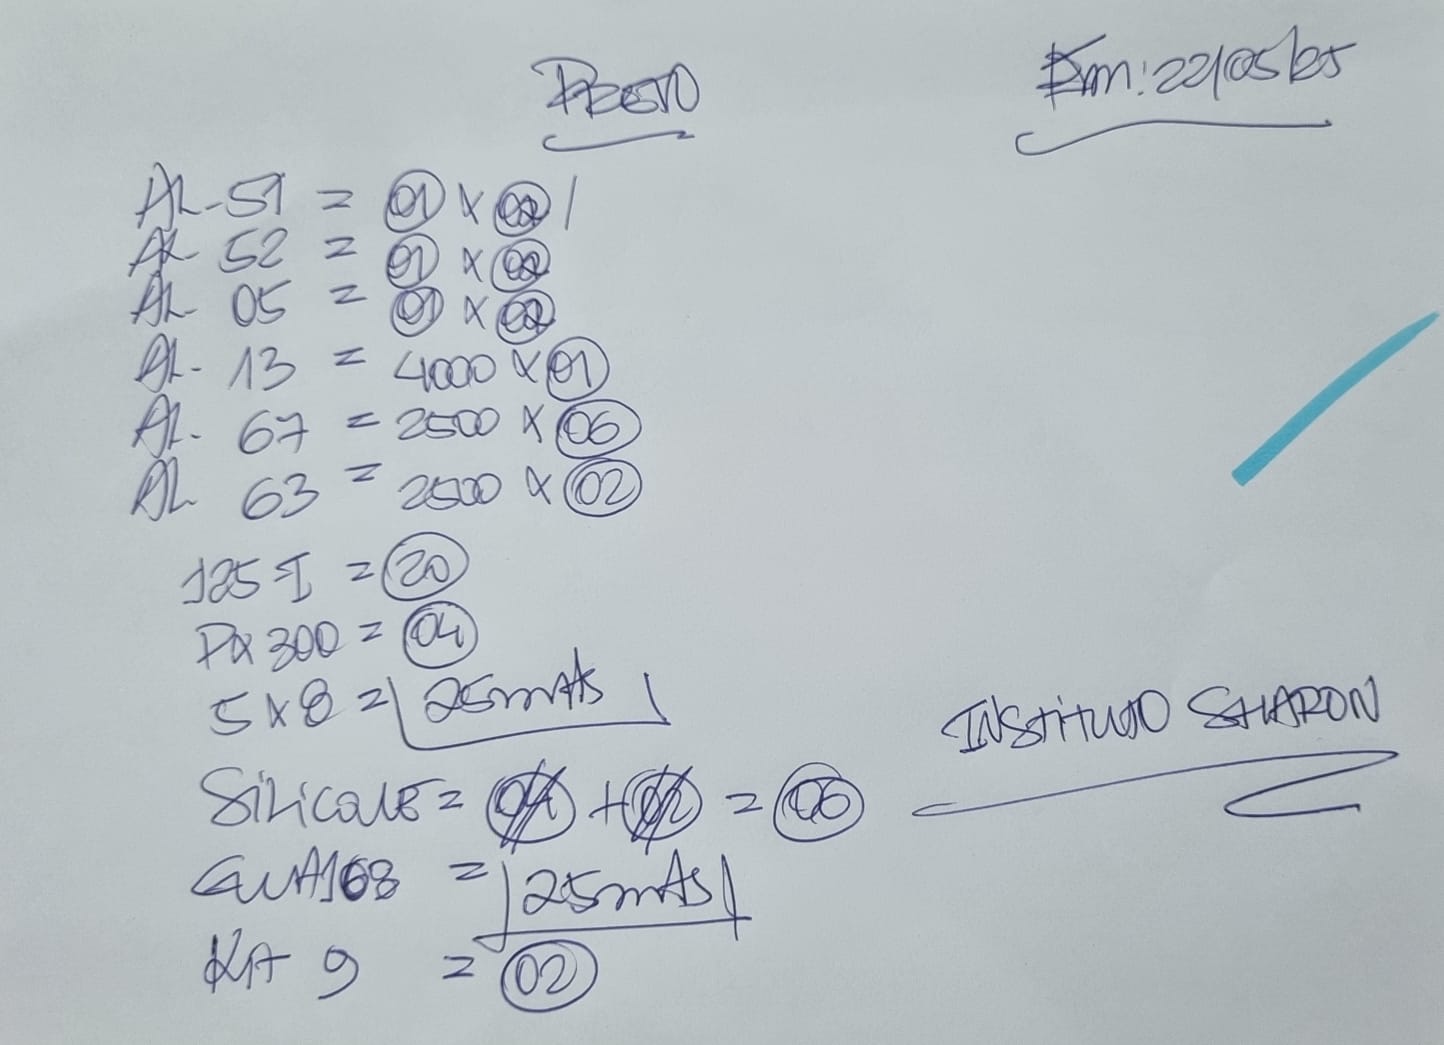 PRETO
Em: 22/05/25
AL-51 = 01 x 02
AL 52 = 01 x 02
AL 05 = 01 x 02
AL- 13 = 4000 x 01
AL- 67 = 2500 x 06
AL 63 = 2500 x 02
125 I = 20
PQ 300 = 04
5 x 8 = 25mts
INSTITUTO SHARON
Silicone = 04 + 02 = 06
GUA168 = 25mts
KIT 9 = 02